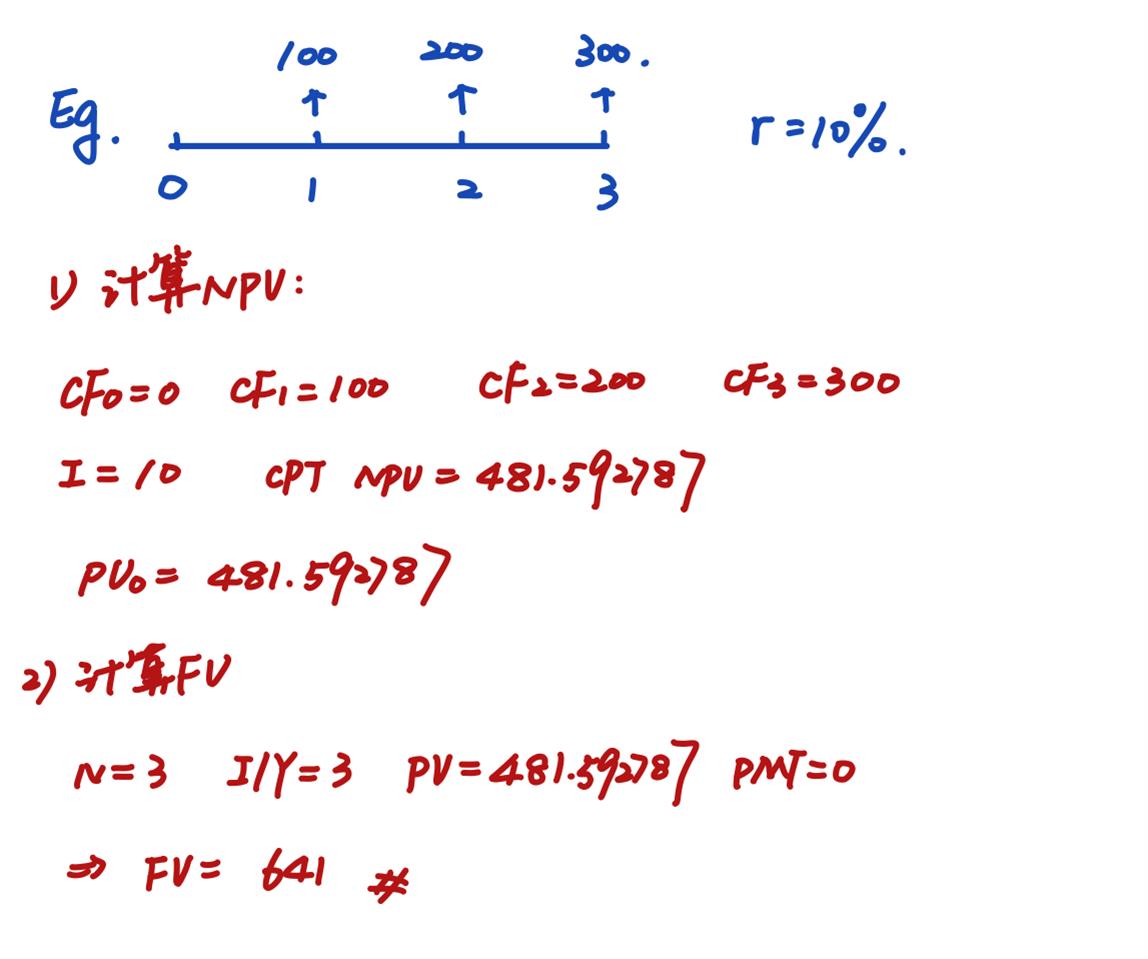 100 200 300.
Eg. r=10%.
0 1 2 3
1) 计算NPV:
CF₀=0 CF₁=100 CF₂=200 CF₃=300
I=10 CPT NPV=481.592787
PV₀=481.592787
2) 计算FV
N=3 I/Y=3 PV=481.592787 PMT=0
⇒ FV= 641 #